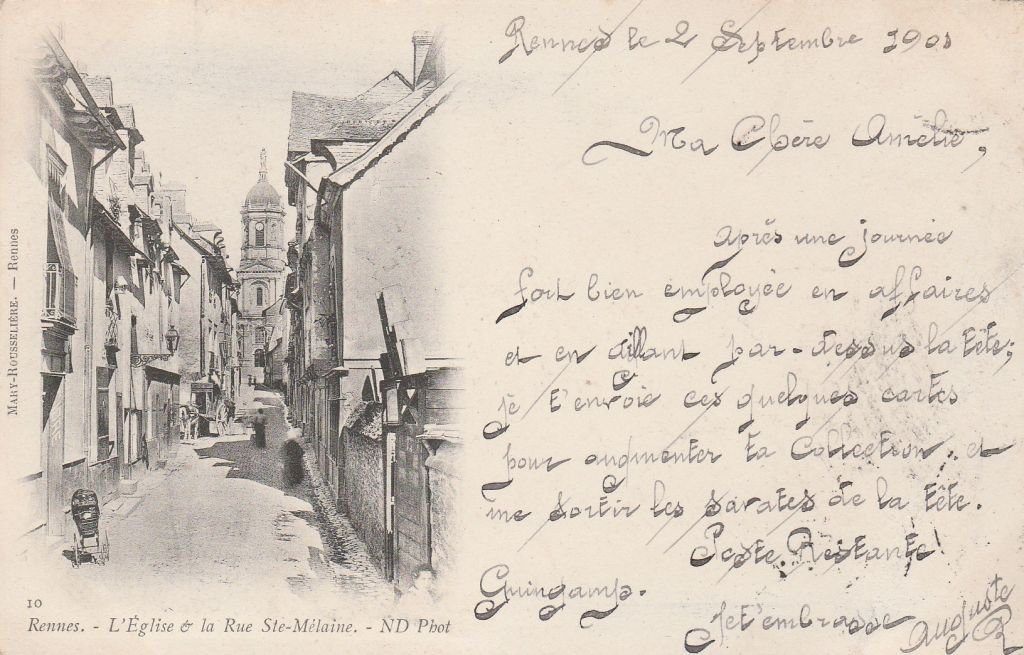 MARY-ROUSSELIÈRE. — Rennes
10
Rennes. - L'Église & la Rue Ste-Mélaine. - ND Phot
Rennes le 2 Septembre 1901
Ma Chère Amélie,
Après une journée
fort bien employée en affaires
et en allant par-dessus la tête;
je t'envoie ces quelques cartes
pour augmenter ta Collection. et
me sortir les savates de la tête.
Poste Restante
Guingamp.
Je t'embrasse
Auguste
R